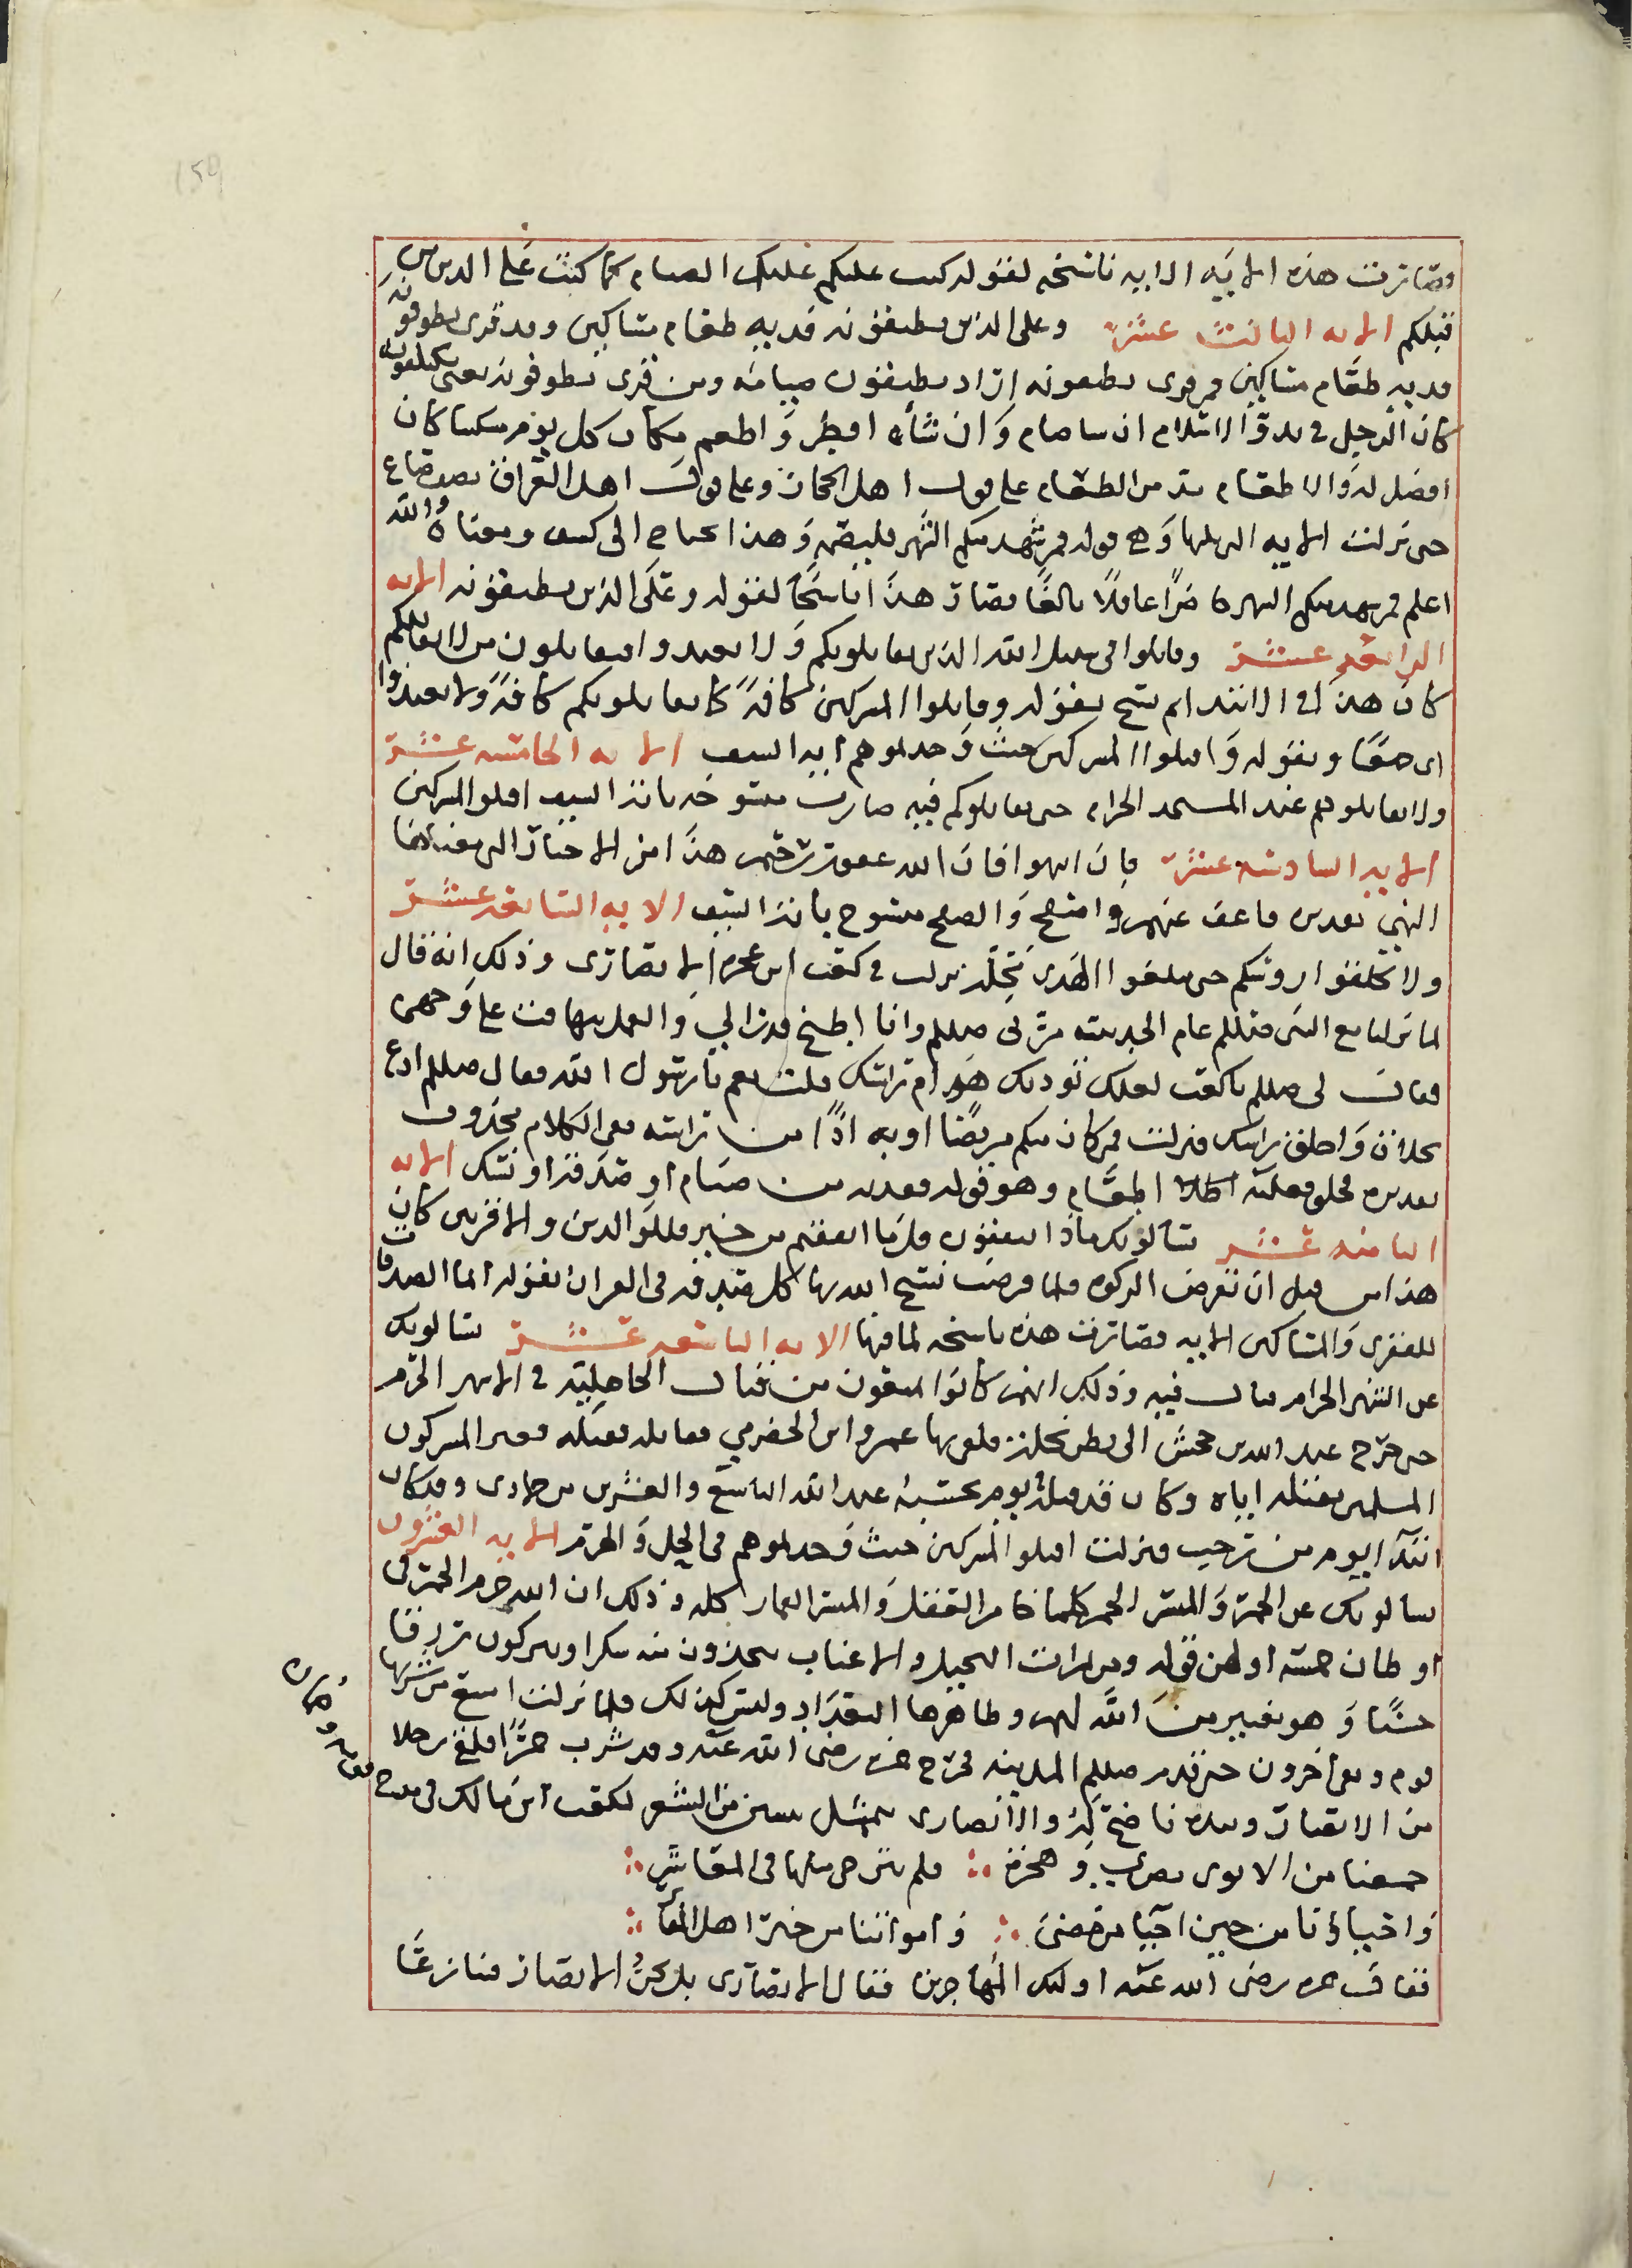 فصارت هذه الايه الايه ناسخه لقوله كتب عليكم عليك الصيام كما كتب على الدين من
قبلكم الايه الثالثة عشرة وعلى الذين يطيقونه فديه طعام مساكين وقد قرى يطوقونه
فديه طعام مساكين فمن قرى يطيقونه اراد يطيقون صيامه ومن قرى يطوقونه يعنى يكلفونه
كان الرجل في بدو الاسلام ان شا صام وان شاء افطر واطعم مكان كل يوم مسكينا كان
افضل له والاطعام مد من الطعام على قول اهل الحجاز وعلى قول اهل العراق نصف صاع
حتى نزلت الايه التي تليها وهي قوله فمن شهد منكم الشهر فليصمه وهذا يحتاج الى كشف ومعناه والله
اعلم فمن شهد منكم الشهر حرا عاقلا بالغا فصار هذا ناسخا لقوله وعلى الذين يطيقونه الايه
الرابعة عشرة وقاتلوا في سبيل الله الذين يقاتلونكم ولا تعتدوا فيقاتلون من لا يقاتلكم
كان هذا في الابتداء ثم نسخ بقوله وقاتلوا المشركين كافة كما يقاتلونكم كافة ولا تعتدوا
اي حقا وبقوله واقتلوا المشركين حيث وجدتموهم ايه السيف الايه الخامسه عشرة
ولا تقاتلوهم عند المسجد الحرام حتى يقاتلوكم فيه صارت منسوخه بايه السيف اقتلوا المشركين
الايه السادسه عشرة فان انتهوا فان الله غفور رحيم هذا من الاخبار التي معناها
النهي تقديره فاعف عنهم واصفح والصفح منسوخ باية السيف الايه السابعه عشرة
ولا تحلقوا روسكم حتى يبلغوا الهدى محله نزلت في كعب ابن عجره الانصارى وذلك انه قال
لما نزلنا مع النبي صللم عام الحديبيه مر بي صللم وانا اطبخ قدرا لي والقمل يتهافت على وجهى
فقال لي صللم يا كعب لعلك تؤذيك هوام راسك قلت نعم يا رسول الله فقال صللم ادع
بحلاق واحلق راسك فنزلت فمن كان منكم مريضا او به اذا من راسه معنى الكلام محذوف
تقديره فحلق فعليه اطعام وهو قوله ففديه من صيام او صدقة او نسك الايه
الثامنه عشر يسالونك ماذا ينفقون قل ما انفقتم من خير فللوالدين والاقربين كان
هذا من قبل ان تفرض الزكوة فلما فرضت نسخ الله بها كل صدقه في القران لقوله انما الصدقات
للفقرى والمساكين الايه فصارت هذه ناسخه لما فيها الايه التاسعه عشرة يسالونك
عن الشهر الحرام قتال فيه وذلك انهم كانوا يتقون من قتال الجاهلية في الاشهر الحرم
حتى خرج عبد الله بن جحش الى بطن نخلة فلقي بها عمرو ابن الحضرمي فقاتله فقتله فعير المشركون
المسلمين بقتله اياه وكان قد قتله يوم يحسبه عبد الله التاسع والعشرين من جمادى وقد كان
ابتدا اليوم من رجب فنزلت اقتلوا المشركين حيث وجدتموهم في الحل والحرم الايه العشرون
يسالونك عن الخمر والميسر الخمر كلما خامر العقل والميسر القمار كله وذلك ان الله حرم الخمر في
اوطان خمسه اولهن قوله ومن ثمرات النخيل والاعناب تتخذون منه سكرا وتتركون رزقا
حسنا وهو تعيير من الله لهم وظاهرها التعداد وليس كذلك فلما نزلت امتنع من شربها
قوم وبقي آخرون حتى قدم صللم المدينه فخرج حمزه رضى الله عنه وقد شرب خمرا فلقي رجلا
من الانصار وبيده ناضح له والانصارى يتمثل ببيتين من الشعر لكعب ابن مالك في مدح
جمعنا من الاوى نصرى وهجرة ∴ فلم ير حي مثلها في المعاشر ∴
واحياؤنا من حين احيا من مضى ∴ وامواتنا من خير اهل المقا ∴
فقال حمزه رضى الله عنه اولئك المهاجرين فقال الانصارى بل نحن الانصار فتنازعا